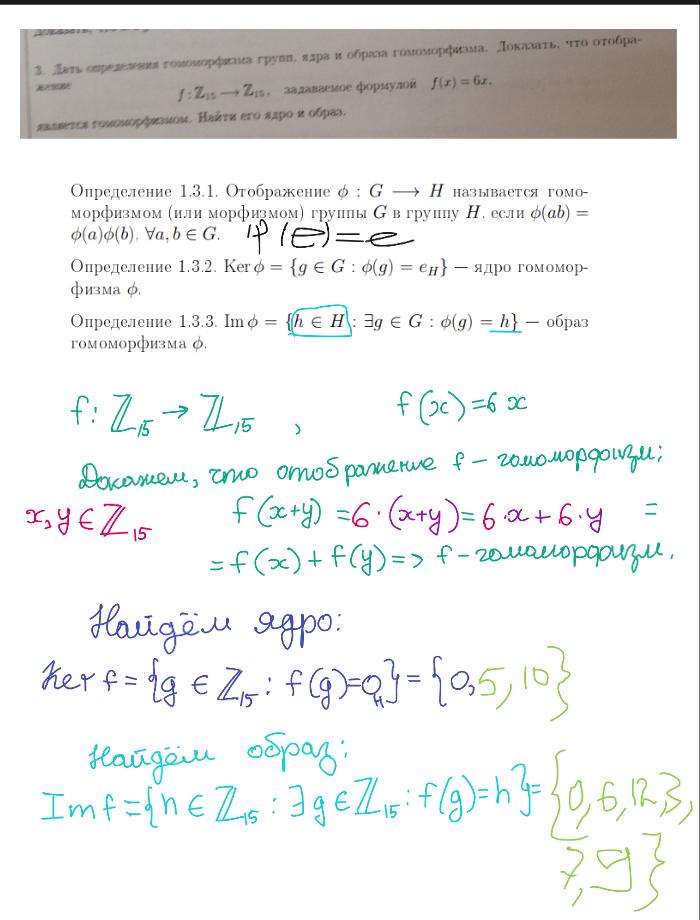 3. Дать определения гомоморфизма групп, ядра и образа гомоморфизма. Доказать, что отобра-
жение
f : ℤ₁₅ ⟶ ℤ₁₅, задаваемое формулой f(x) = 6x,
является гомоморфизмом. Найти его ядро и образ.
Определение 1.3.1. Отображение ϕ : G ⟶ H называется гомо-
морфизмом (или морфизмом) группы G в группу H, если ϕ(ab) =
ϕ(a)ϕ(b), ∀a, b ∈ G. φ(e)=e
Определение 1.3.2. Ker ϕ = {g ∈ G : ϕ(g) = e_H} — ядро гомомор-
физма ϕ.
Определение 1.3.3. Im ϕ = {h ∈ H : ∃g ∈ G : ϕ(g) = h} — образ
гомоморфизма ϕ.
f: ℤ₁₅ → ℤ₁₅, f(x)=6x
Докажем, что отображение f – гомоморфизм:
x, y ∈ ℤ₁₅ f(x+y) = 6·(x+y) = 6·x + 6·y =
= f(x) + f(y) => f – гомоморфизм.
Найдём ядро:
Ker f = {g ∈ ℤ₁₅ : f(g)=0_H} = {0, 5, 10}
Найдём образ:
Im f = {h ∈ ℤ₁₅ : ∃g ∈ ℤ₁₅ : f(g)=h} = {0, 6, 12, 3,
7, 9}